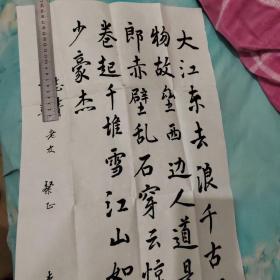 大江东去浪千古
物故垒西边人道是
郎赤壁乱石穿云惊
卷起千堆雪江山如
少豪杰